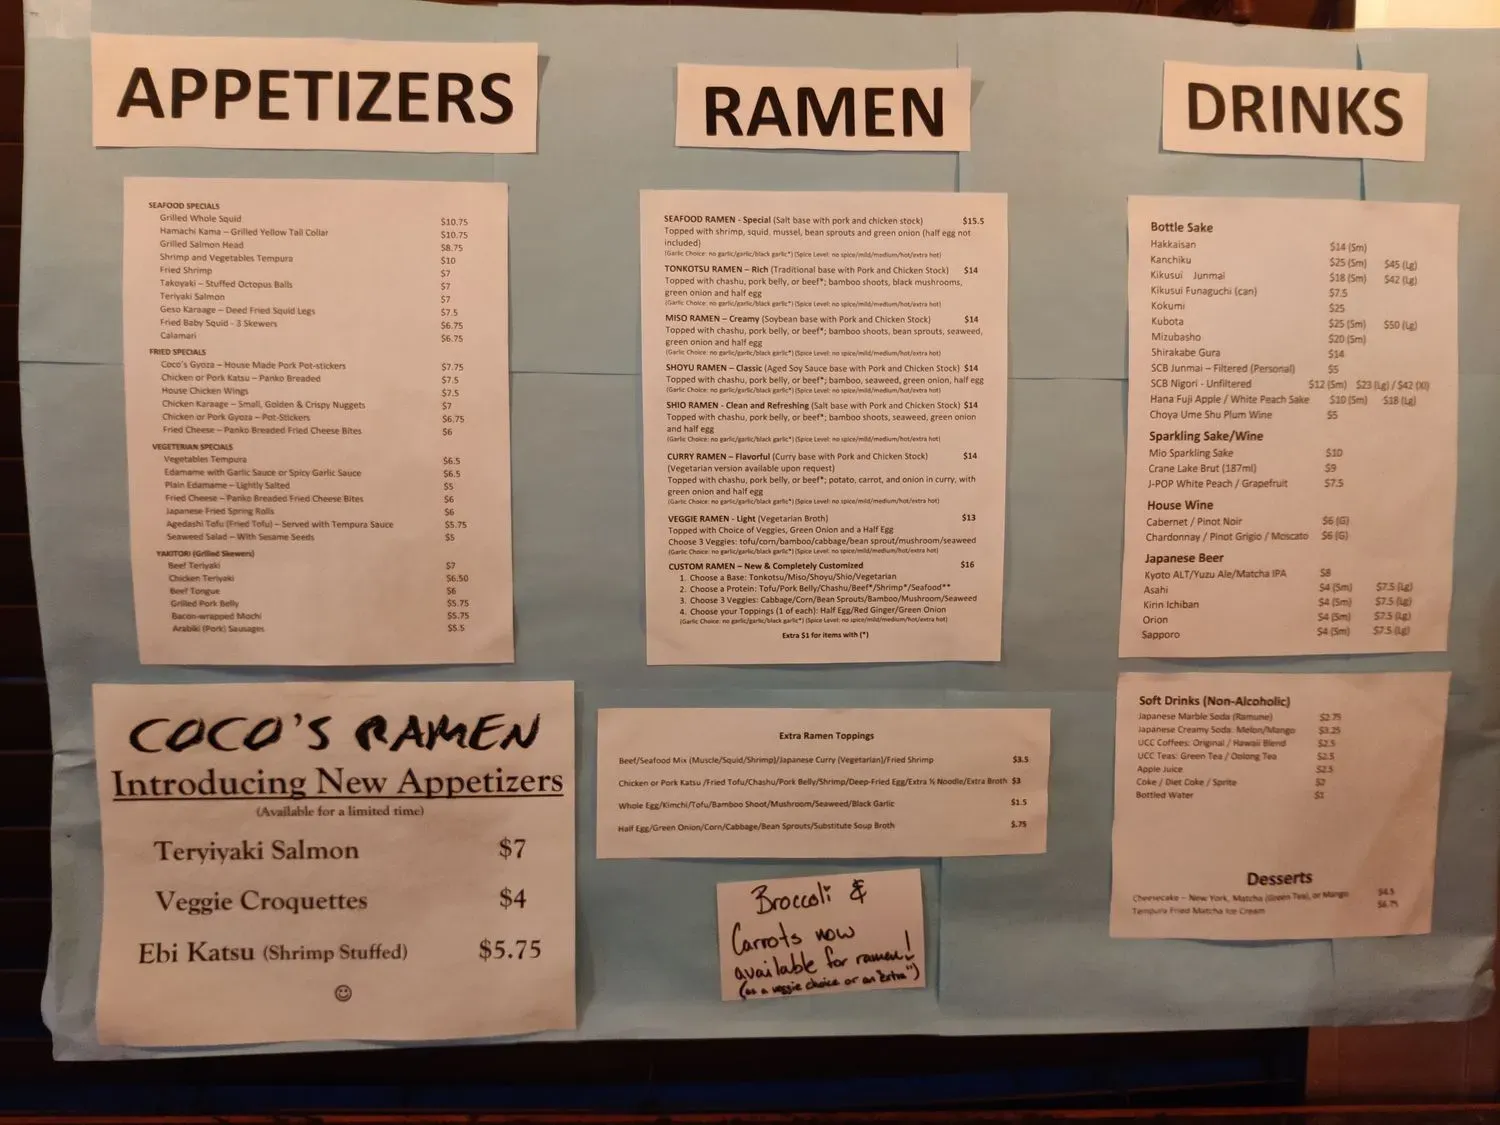 APPETIZERS
SEAFOOD SPECIALS
Grilled Whole Squid $10.75
Hamachi Kama – Grilled Yellow Tail Collar $10.75
Grilled Salmon Head $8.75
Shrimp and Vegetables Tempura $10
Fried Shrimp $7
Takoyaki – Stuffed Octopus Balls $7
Teriyaki Salmon $7
Geso Karaage – Deed Fried Squid Legs $7.5
Fried Baby Squid - 3 Skewers $6.75
Calamari $6.75
FRIED SPECIALS
Coco's Gyoza – House Made Pork Pot-stickers $7.75
Chicken or Pork Katsu – Panko Breaded $7.5
House Chicken Wings $7.5
Chicken Karaage – Small, Golden & Crispy Nuggets $7
Chicken or Pork Gyoza – Pot-Stickers $6.75
Fried Cheese – Panko Breaded Fried Cheese Bites $6
VEGETERIAN SPECIALS
Vegetables Tempura $6.5
Edamame with Garlic Sauce or Spicy Garlic Sauce $6.5
Plain Edamame – Lightly Salted $5
Fried Cheese – Panko Breaded Fried Cheese Bites $6
Japanese Fried Spring Rolls $6
Agedashi Tofu (Fried Tofu) – Served with Tempura Sauce $5.75
Seaweed Salad – With Sesame Seeds $5
YAKITORI (Grilled Skewers)
Beef Teriyaki $7
Chicken Teriyaki $6.50
Beef Tongue $6
Grilled Pork Belly $5.75
Bacon-wrapped Mochi $5.75
Arabiki (Pork) Sausages $5.5
COCO'S RAMEN
Introducing New Appetizers
(Available for a limited time)
Teryiyaki Salmon $7
Veggie Croquettes $4
Ebi Katsu (Shrimp Stuffed) $5.75
☺
RAMEN
SEAFOOD RAMEN - Special (Salt base with pork and chicken stock) $15.5
Topped with shrimp, squid, mussel, bean sprouts and green onion (half egg not
included)
(Garlic Choice: no garlic/garlic/black garlic*) (Spice Level: no spice/mild/medium/hot/extra hot)
TONKOTSU RAMEN – Rich (Traditional base with Pork and Chicken Stock) $14
Topped with chashu, pork belly, or beef*; bamboo shoots, black mushrooms,
green onion and half egg
(Garlic Choice: no garlic/garlic/black garlic*) (Spice Level: no spice/mild/medium/hot/extra hot)
MISO RAMEN – Creamy (Soybean base with Pork and Chicken Stock) $14
Topped with chashu, pork belly, or beef*; bamboo shoots, bean sprouts, seaweed,
green onion and half egg
(Garlic Choice: no garlic/garlic/black garlic*) (Spice Level: no spice/mild/medium/hot/extra hot)
SHOYU RAMEN – Classic (Aged Soy Sauce base with Pork and Chicken Stock) $14
Topped with chashu, pork belly, or beef*; bamboo, seaweed, green onion, half egg
(Garlic Choice: no garlic/garlic/black garlic*) (Spice Level: no spice/mild/medium/hot/extra hot)
SHIO RAMEN - Clean and Refreshing (Salt base with Pork and Chicken Stock) $14
Topped with chashu, pork belly, or beef*; bamboo shoots, seaweed, green onion
and half egg
(Garlic Choice: no garlic/garlic/black garlic*) (Spice Level: no spice/mild/medium/hot/extra hot)
CURRY RAMEN – Flavorful (Curry base with Pork and Chicken Stock) $14
(Vegetarian version available upon request)
Topped with chashu, pork belly, or beef*; potato, carrot, and onion in curry, with
green onion and half egg
(Garlic Choice: no garlic/garlic/black garlic*) (Spice Level: no spice/mild/medium/hot/extra hot)
VEGGIE RAMEN - Light (Vegetarian Broth) $13
Topped with Choice of Veggies, Green Onion and a Half Egg
Choose 3 Veggies: tofu/corn/bamboo/cabbage/bean sprout/mushroom/seaweed
(Garlic Choice: no garlic/garlic/black garlic*) (Spice Level: no spice/mild/medium/hot/extra hot)
CUSTOM RAMEN – New & Completely Customized $16
1. Choose a Base: Tonkotsu/Miso/Shoyu/Shio/Vegetarian
2. Choose a Protein: Tofu/Pork Belly/Chashu/Beef*/Shrimp*/Seafood**
3. Choose 3 Veggies: Cabbage/Corn/Bean Sprouts/Bamboo/Mushroom/Seaweed
4. Choose your Toppings (1 of each): Half Egg/Red Ginger/Green Onion
(Garlic Choice: no garlic/garlic/black garlic*) (Spice Level: no spice/mild/medium/hot/extra hot)
Extra $1 for items with (*)
Extra Ramen Toppings
Beef/Seafood Mix (Muscle/Squid/Shrimp)/Japanese Curry (Vegetarian)/Fried Shrimp $3.5
Chicken or Pork Katsu /Fried Tofu/Chashu/Pork Belly/Shrimp/Deep-Fried Egg/Extra ½ Noodle/Extra Broth $3
Whole Egg/Kimchi/Tofu/Bamboo Shoot/Mushroom/Seaweed/Black Garlic $1.5
Half Egg/Green Onion/Corn/Cabbage/Bean Sprouts/Substitute Soup Broth $.75
Broccoli &
Carrots now
available for ramen!
(as a veggie choice or an "extra")
DRINKS
Bottle Sake
Hakkaisan $14 (Sm)
Kanchiku $25 (Sm) $45 (Lg)
Kikusui Junmai $18 (Sm) $42 (Lg)
Kikusui Funaguchi (can) $7.5
Kokumi $25
Kubota $25 (Sm) $50 (Lg)
Mizubasho $20 (Sm)
Shirakabe Gura $14
SCB Junmai – Filtered (Personal) $5
SCB Nigori - Unfiltered $12 (Sm) $23 (Lg) / $42 (Xl)
Hana Fuji Apple / White Peach Sake $10 (Sm) $18 (Lg)
Choya Ume Shu Plum Wine $5
Sparkling Sake/Wine
Mio Sparkling Sake $10
Crane Lake Brut (187ml) $9
J-POP White Peach / Grapefruit $7.5
House Wine
Cabernet / Pinot Noir $6 (G)
Chardonnay / Pinot Grigio / Moscato $6 (G)
Japanese Beer
Kyoto ALT/Yuzu Ale/Matcha IPA $8
Asahi $4 (Sm) $7.5 (Lg)
Kirin Ichiban $4 (Sm) $7.5 (Lg)
Orion $4 (Sm) $7.5 (Lg)
Sapporo $4 (Sm) $7.5 (Lg)
Soft Drinks (Non-Alcoholic)
Japanese Marble Soda (Ramune) $2.75
Japanese Creamy Soda: Melon/Mango $3.25
UCC Coffees: Original / Hawaii Blend $2.5
UCC Teas: Green Tea / Oolong Tea $2.5
Apple Juice $2.5
Coke / Diet Coke / Sprite $2
Bottled Water $1
Desserts
Cheesecake – New York, Matcha (Green Tea), or Mango $4.5
Tempura Fried Matcha Ice Cream $6.75